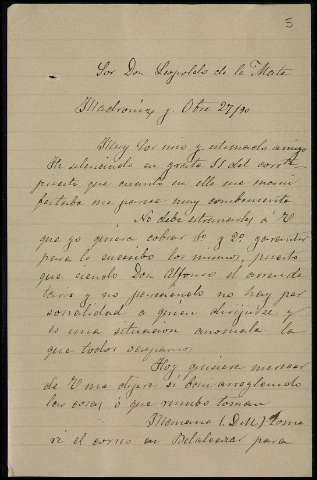 5
Sor Don Leopoldo de la Mata
Madroñiz y Obre 27/90
Muy Sor mio y estimado amigo
He detenido su grata 11 del corrte
puesto que cuanto en ella me mani
festaba me parece muy conveniente
No debe estrañarle á V
que yo quiera cobrar 1º y 2º garantia
para lo sucesivo los mismos, puesto
que siendo Don Alfonso el arrenda
tario y no pareciendo no hay per
sonalidad a quien dirijirse y
es una situacion anomala la
que todos ocupamos.
Hoy quisiera merecer
de V me dijera si han arreglando
las cosas, ó que rumbo toman
Mañana (D.M.) toma
ré el correo en Belalcazar para